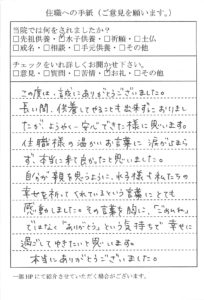 住職への手紙（ご意見を願います。）
当院では何をされましたか？
□先祖供養・☑水子供養・□祈願・□土仏
□戒名・□相談・□手元供養・□その他
チェックをいれ詳しくお聞かせ下さい。
□意見・□質問・□苦情・☑お礼・□その他
この度は、誠にありがとうございました。
長い間、供養してやることも出来ずにおりまし
たが、ようやく安心できた様に思います。
住職様の温かいお言葉に涙が止まら
ず、本当に来て良かったと思いました。
自分が親を思うように、水子様も私たちの
幸せを祈ってくれているという言葉にとても
感動しました。その言葉を胸に、「ごめんね」
ではなく「ありがとう」という気持ちで幸せに
過ごしてゆきたいと思います。
本当にありがとうございました。
一部HPにて紹介させていただく場合がございます。